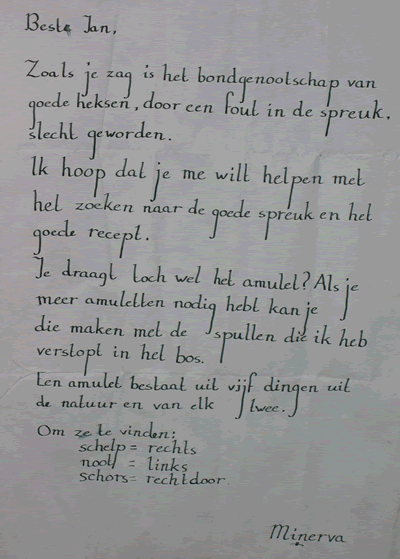 Beste Jan,
Zoals je zag is het bondgenootschap van
goede heksen, door een fout in de spreuk,
slecht geworden.
Ik hoop dat je me wilt helpen met
het zoeken naar de goede spreuk en het
goede recept.
Je draagt toch wel het amulet? Als je
meer amuletten nodig hebt kan je
die maken met de spullen die ik heb
verstopt in het bos.
Een amulet bestaat uit vijf dingen uit
de natuur en van elk twee.
Om ze te vinden:
schelp = rechts
noot = links
schors = rechtdoor.
Minerva